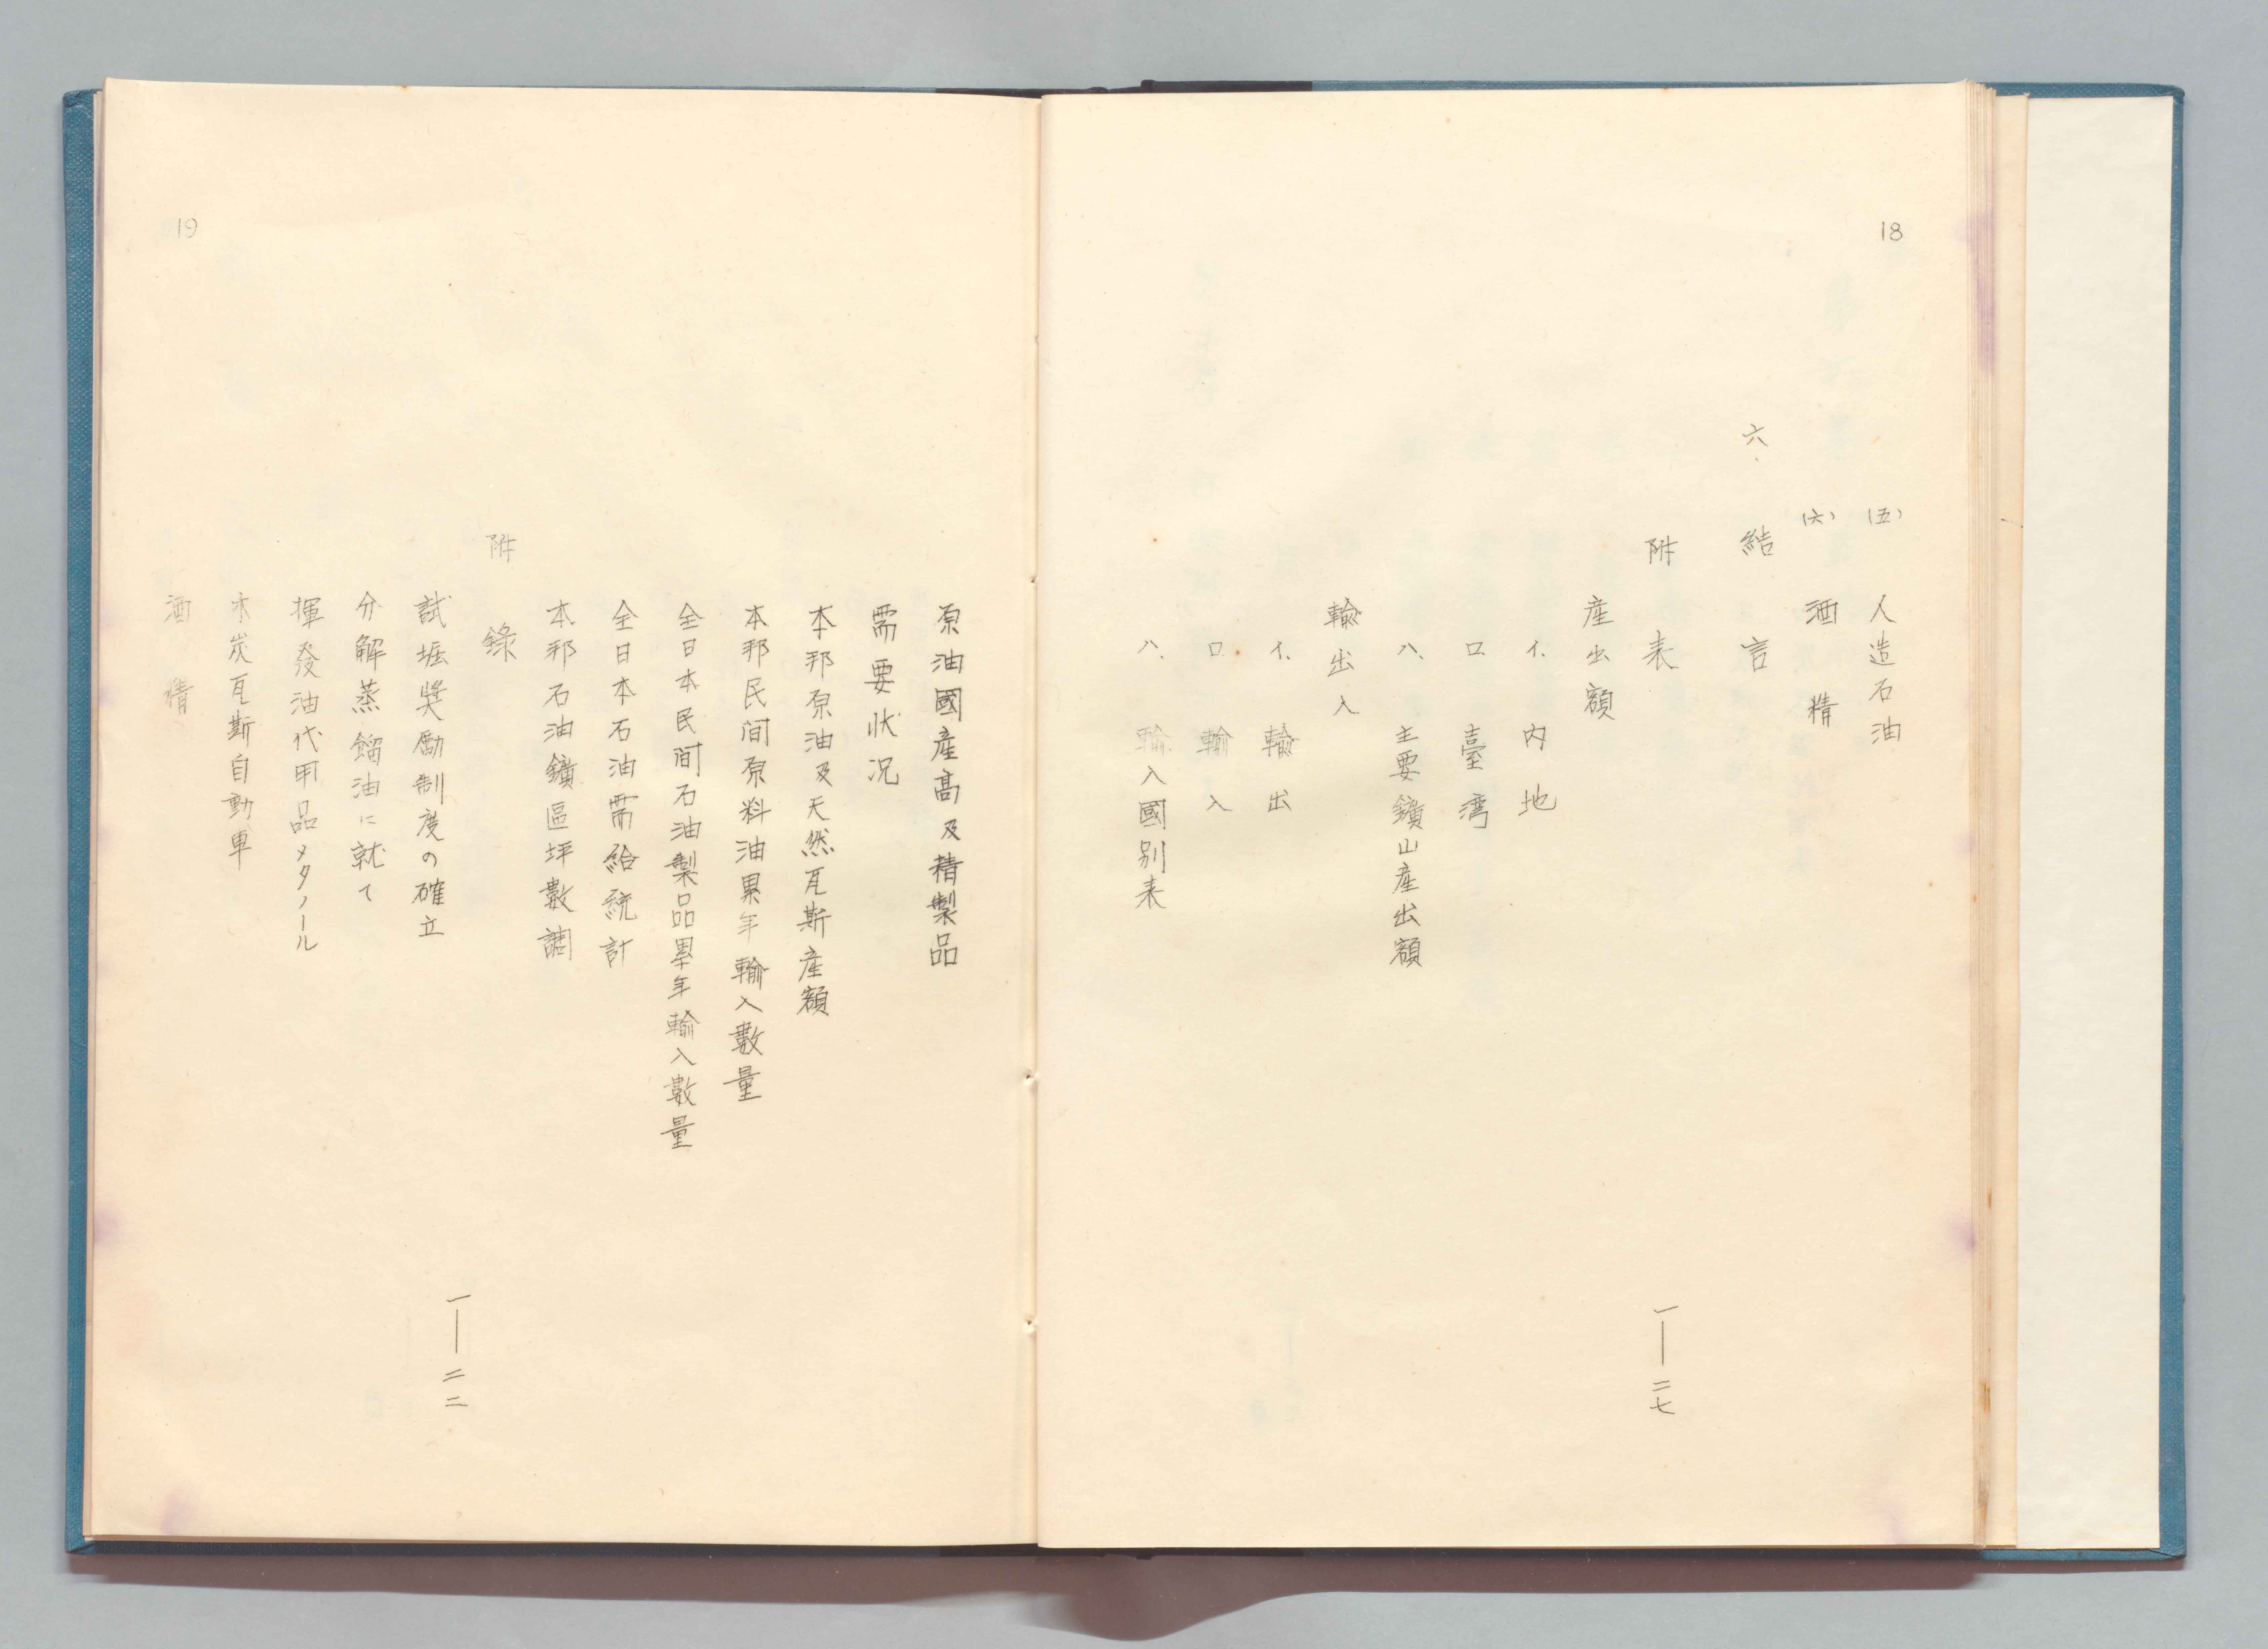 18
(五) 人造石油
(六) 酒精
六、結言
附表
産出額
イ、内地
ロ、臺湾
ハ、主要鑛山産出額
輸出入
イ、輸出
ロ、輸入
ハ、輸入國別表
一—二七
原油國産高及精製品
需要状况
本邦原油及天然瓦斯産額
本邦民间原料油累年輸入數量
全日本民间石油製品累年輸入數量
全日本石油需給統計
本邦石油鑛區坪數調
附錄
試堀奨励制度の確立
分解蒸餾油に就て
揮發油代用品メタノール
木炭瓦斯自動車
酒精
一—二二
19